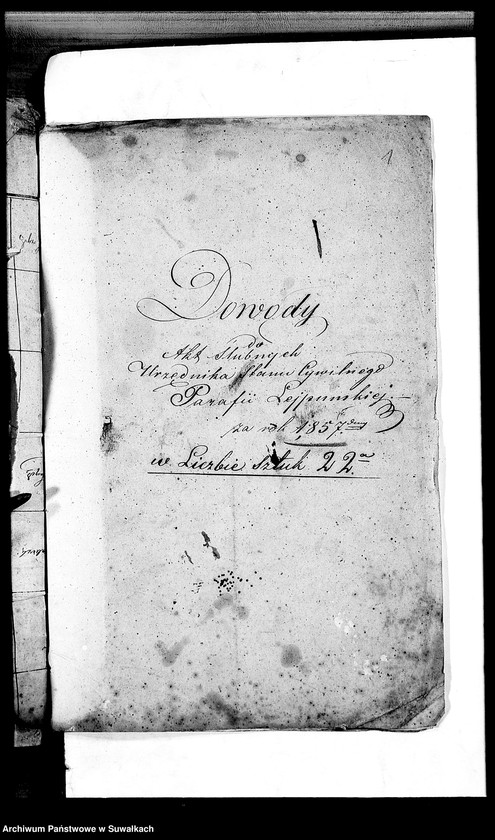 1
Dowody
do
Akt Slubnych
Urzędnika Stanu Cywilnego
Parafii Lejpunskiej
za rok 1857
w Liczbie sztuk 22
Archiwum Państwowe w Suwałkach